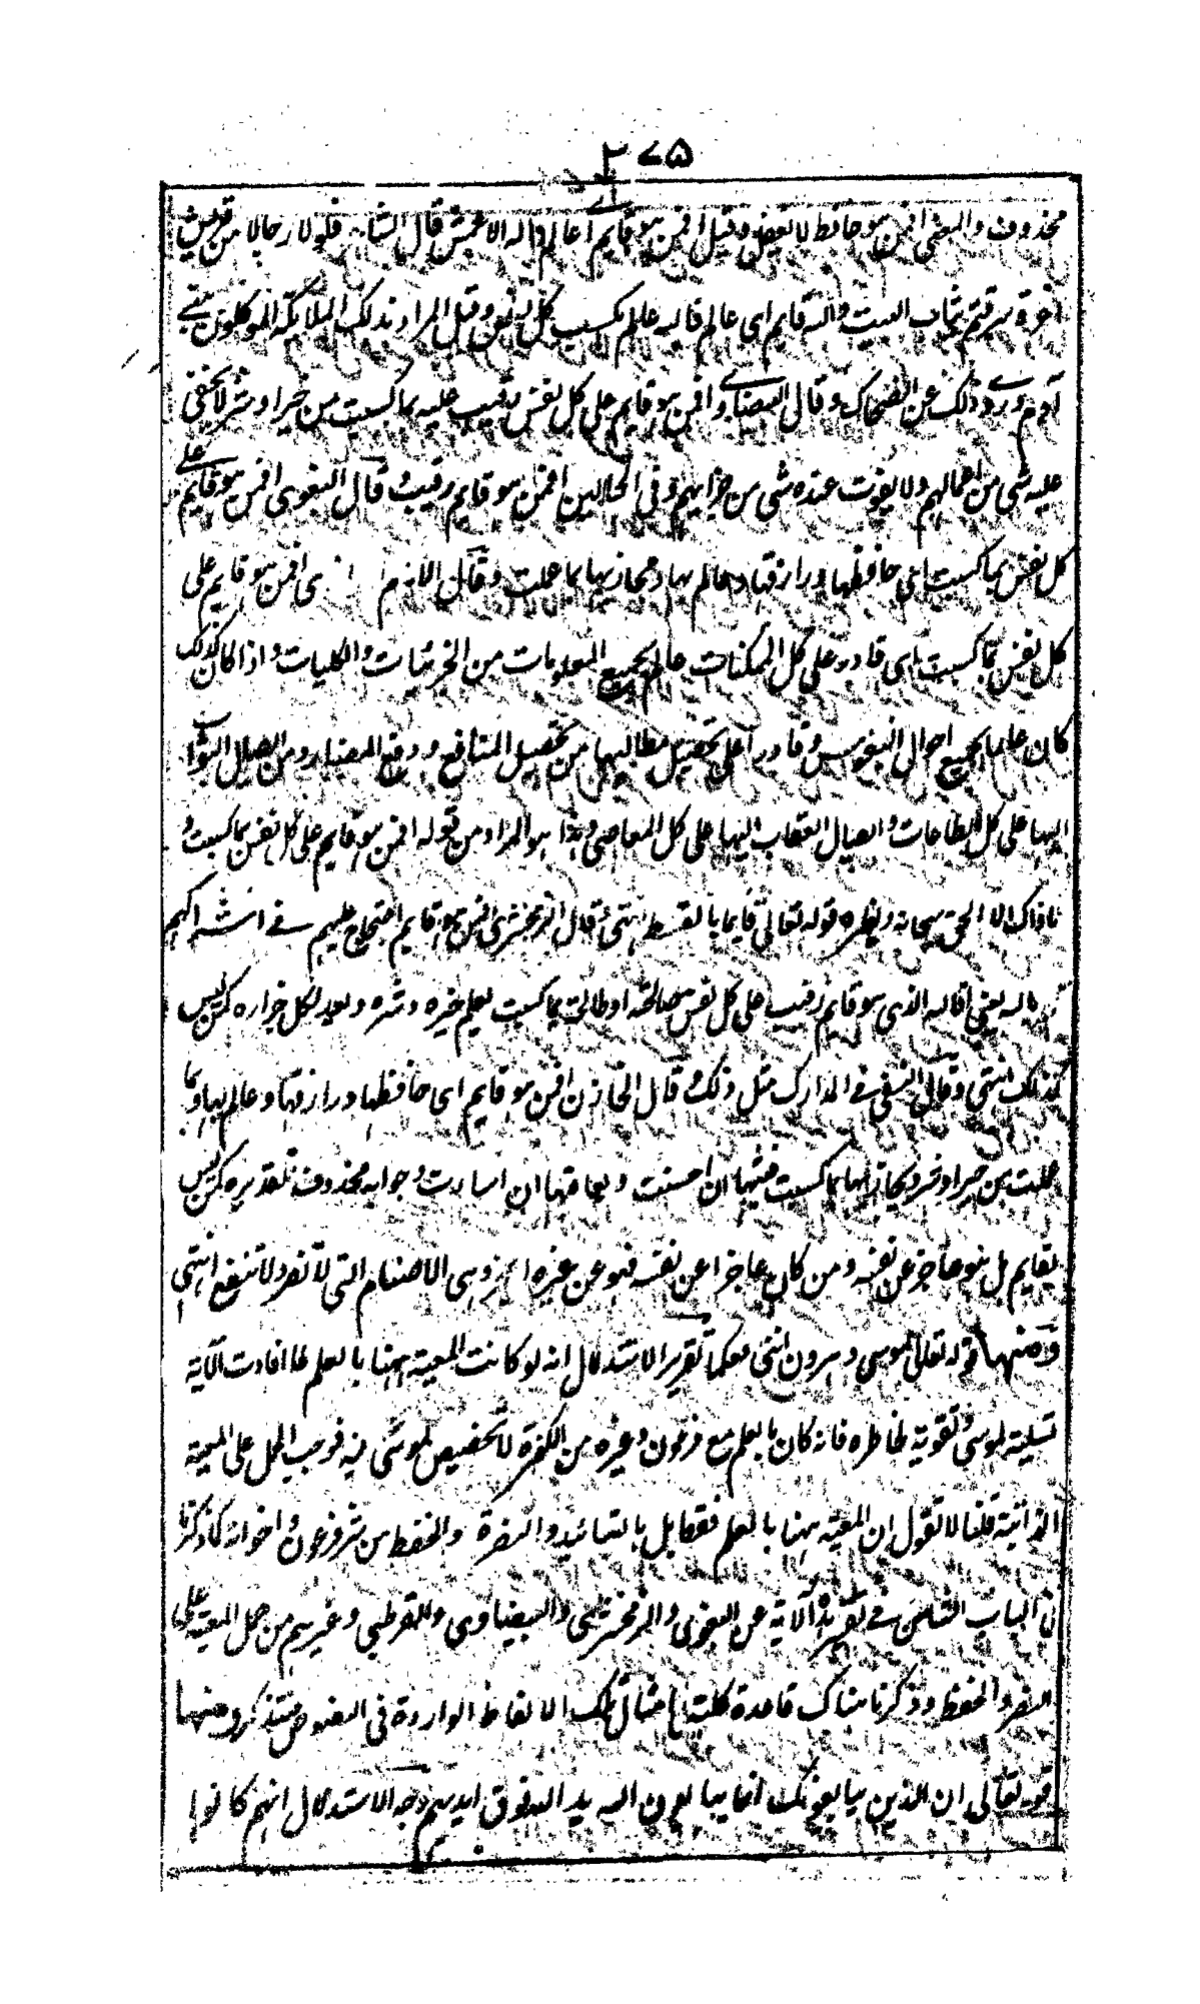 ٢٧٥
محذوف والمعنى افمن هو حافظ لا يغفل وقيل افمن هو قايم اى عالم قاله الاعمش قال الشاعر فلولا رجالا من قريش
اعزة سرقتم ثياب البيت والله قايم اى عالم فالله عالم بكسب كل نفس وقيل المراد بذلك الملايكة الموكلون ببنى
آدم وروى ذلك عن الضحاك وقال البيضاوى افمن هو قايم على كل نفس رقيب عليه بما كسبت من خير او شر لا يخفى
عليه شى من اعمالهم ولا يفوت عنده شى من جزايهم وفى الجلالين افمن هو قايم رقيب وقال البغوى افمن هو قايم على
كل نفس بما كسبت اى حافظها ورازقها وعالم بها ومجازيها بما عملت وقال الامام افمن هو قايم على
كل نفس بما كسبت اى قادر على كل الممكنات عالم بجميع المعلومات من الجزئيات والكليات واذا كان كذلك
كان عالما بجميع احوال النفوس وقادرا على تحصيل مطالبها من تحصيل المنافع ودفع المضار ومن ايصال الثواب
اليها على كل الطاعات وايصال العقاب اليها على كل المعاصى وهذا هو المراد من قوله افمن هو قايم على كل نفس بما كسبت و
ما ذاك الا الحق سبحانه ونظيره قوله تعالى قايما بالقسط انتهى وقال الزمخشرى افمن هو قايم احتجاج عليهم فى اشراكهم
بالله يعنى افالله الذى هو قايم رقيب على كل نفس صالحة او طالحة بما كسبت يعلم خيره وشره ويعد لكل جزاره كمن ليس
كذلك انتهى وقال النسفى فى المدارك مثل ذلك وقال الخازن افمن هو قايم اى حافظها ورازقها وعالم بها وبما
عملت من خير وشر ويجازيها بما كسبت فيثيبها ان احسنت ويعاقبها ان اسارت وجوابه محذوف تقديره كمن ليس
بقايم بل هو عاجز عن نفسه ومن كان عاجزا عن نفسه فهو عن غيره اعجز وهى الاصنام التى لا تضر ولا تنفع انتهى
ومنها قوله تعالى لموسى وهرون اننى معكما تقرير الاستدلال انه لو كانت المعية ههنا بالعلم لما افادت الآية
تسلية لموسى وتقوية لخاطره فانه كان بالعلم مع فرعون وغيره من الكفرة لا تخصيص لموسى فيه فوجب الحمل على المعية
الذاتية قلنا لا نقول ان المعية ههنا بالعلم فقط بل بالتائيد والنصرة والحفظ من شر فرعون واخوانه كما ذكرنا
فى الباب الثامن فى تفسير هذه الآية عن البغوى والزمخشرى والبيضاوى والقرطبى وغيرهم من حمل المعية على
النصر والحفظ وذكرنا هناك قاعدة كلية فى امثال تلك الالفاظ الواردة فى النصوص فتذكر ومنها
قوله تعالى ان الذين يبايعونك انما يبايعون الله يد الله فوق ايديهم وجه الاستدلال انهم كانوا